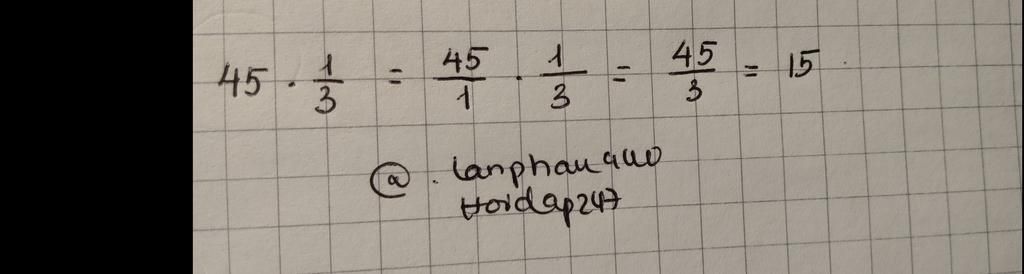 45 · 1/3 = 45/1 · 1/3 = 45/3 = 15
@. lanphau
Hoidap247